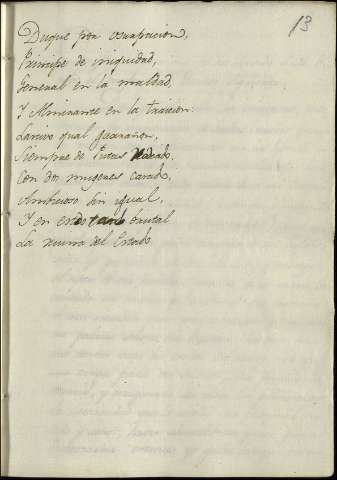 13
Duque por usurpacion,
Principe de iniquidad,
General en la maldad,
Y Almirante en la traicion:
Lascivo qual guarañon,
Siempre de Putas rodeado,
Con dos mugeres casado,
Ambicioso sin igual,
Y en brutal
La ruina del Estado